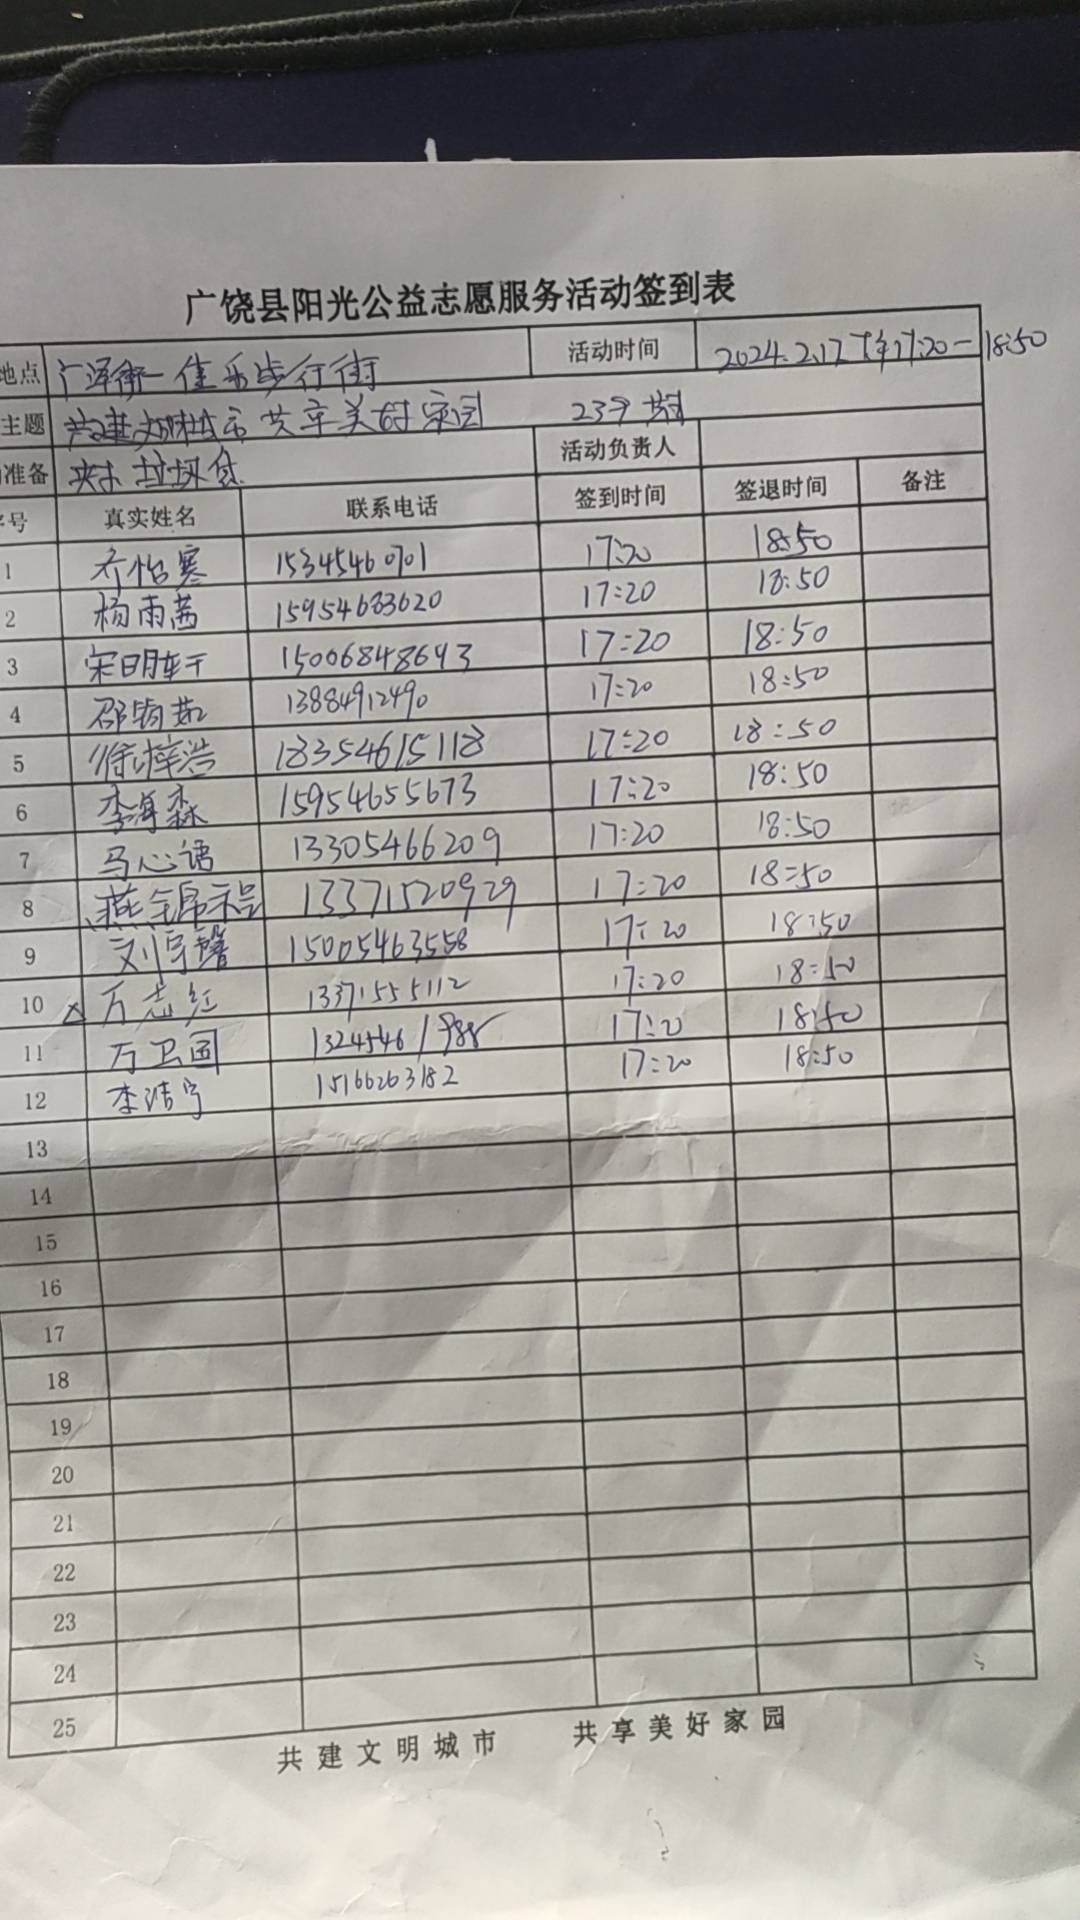 广饶县阳光公益志愿服务活动签到表
地点 广泽街一佳乐步行街 活动时间 2024.2.17 下午17:20-18:50
主题 共建文明城市 共享美好家园
准备 夹子 垃圾袋 活动负责人
序号 真实姓名 联系电话 签到时间 签退时间 备注
1 乔怡寒 15345460701 17:20 18:50
2 杨雨茜 15954683620 17:20 18:50
3 宋明轩 15006848643 17:20 18:50
4 邵钧茹 13884912490 17:20 18:50
5 徐梓浩 18354615118 17:20 18:50
6 李海森 15954655673 17:20 18:50
7 马心语 13305466209 17:20 18:50
8 燕锦 13371520929 17:20 18:50
9 刘宇馨 15005463558 17:20 18:50
10 万志红 13371555112 17:20 18:50
11 万卫国 13245461988 17:20 18:50
12 李洁宁 15166263182 17:20 18:50
13
14
15
16
17
18
19
20
21
22
23
24
25
共建文明城市 共享美好家园